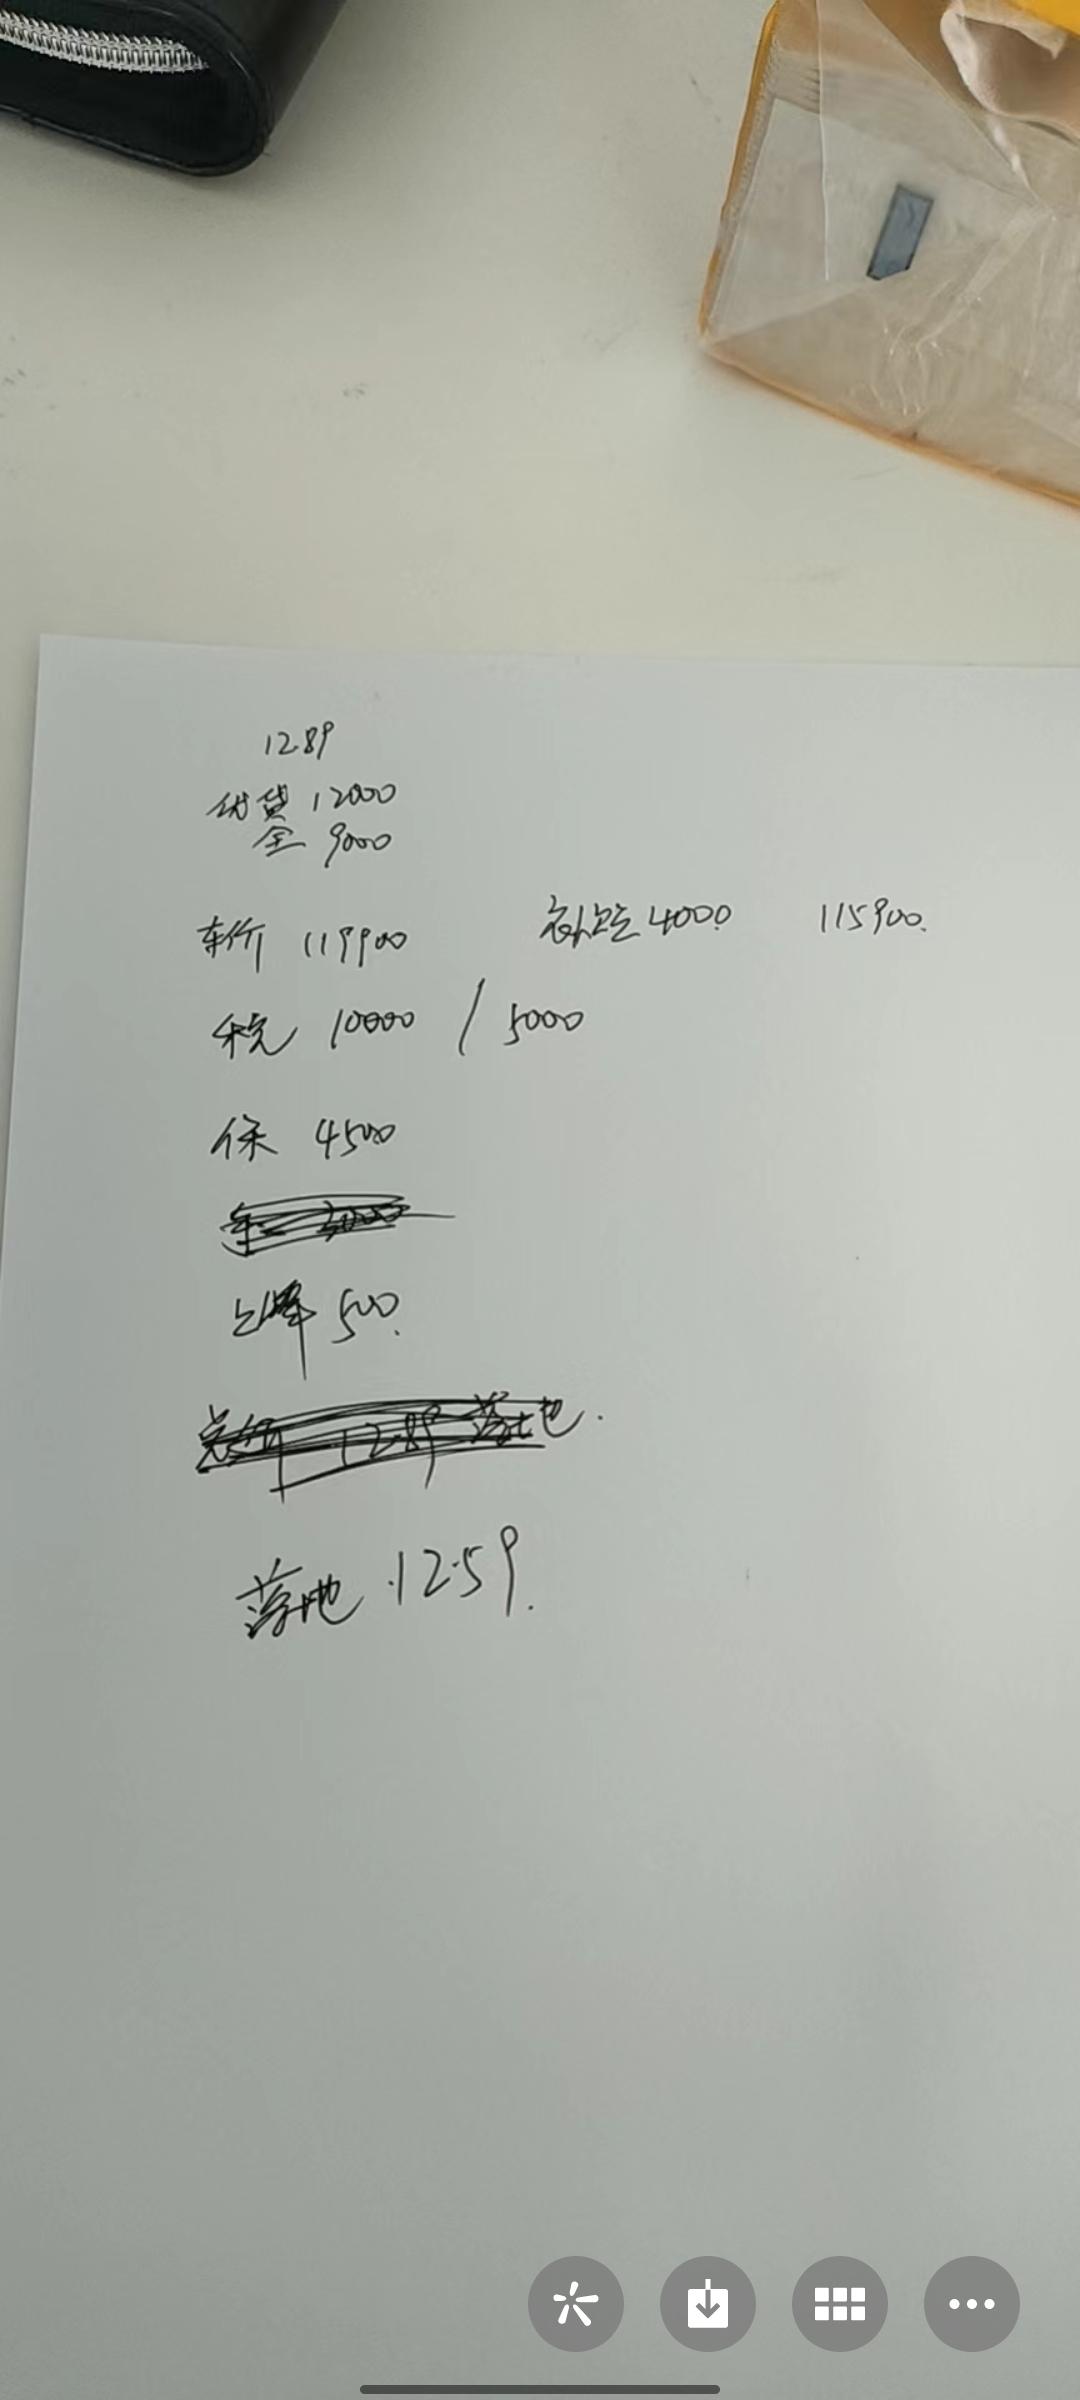 1289
优贷 12000
全 9000
车价 119900 补贴 4000. 115900.
税 10000 / 5000
保 4500
上牌 500.
落地 12.59.